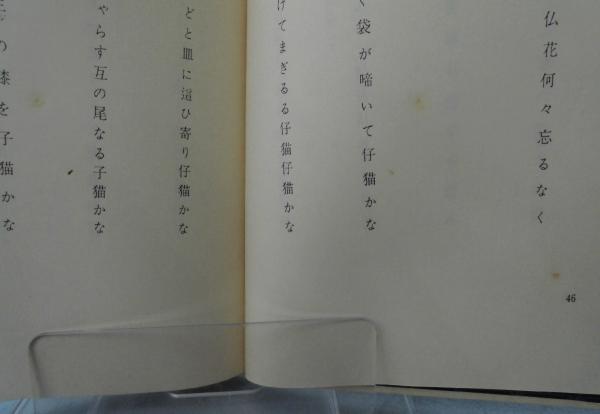 仏花何々忘るなく
く袋が啼いて仔猫かな
けてまぎるる仔猫仔猫かな
どと皿に這ひ寄り仔猫かな
ゃらす互の尾なる子猫かな
の膝を子猫かな
46